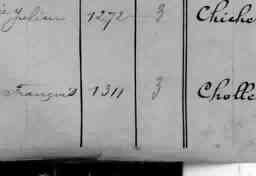 Julien 1272 3 Chiche
François 1311 3 Cholle